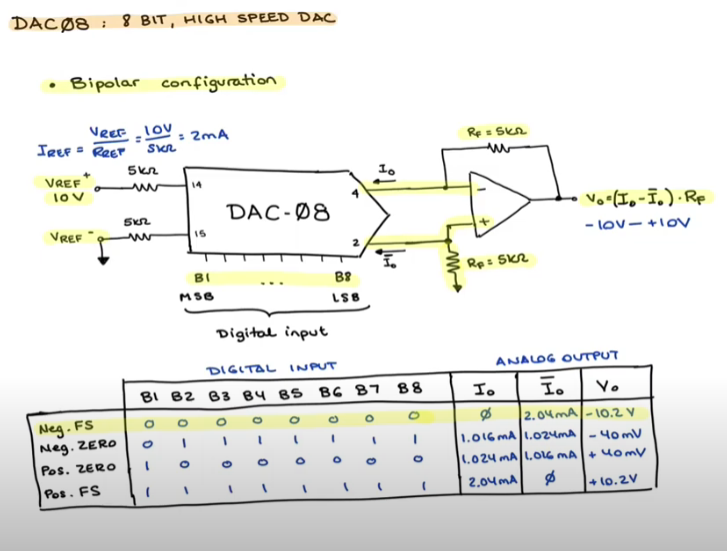 DACØ8 : 8 BIT, HIGH SPEED DAC
• Bipolar configuration
IREF = VREF/RREF = 10V/5KΩ = 2mA
RF = 5KΩ
5KΩ
VREF +
10V
14
Io
4
-
Vo=(Io-I̅o)·RF
-10V — +10V
DAC-Ø8
5KΩ
VREF -
15
2
+
I̅o
RF = 5KΩ
B1 ... B8
MSB LSB
Digital input
DIGITAL INPUT ANALOG OUTPUT
B1 B2 B3 B4 B5 B6 B7 B8 Io I̅o Vo
Neg. FS 0 0 0 0 0 0 0 0 Ø 2.04mA -10.2V
Neg. ZERO 0 1 1 1 1 1 1 1 1.016mA 1.024mA -40mV
Pos. ZERO 1 0 0 0 0 0 0 0 1.024mA 1.016mA +40mV
Pos. FS 1 1 1 1 1 1 1 1 2.04mA Ø +10.2V